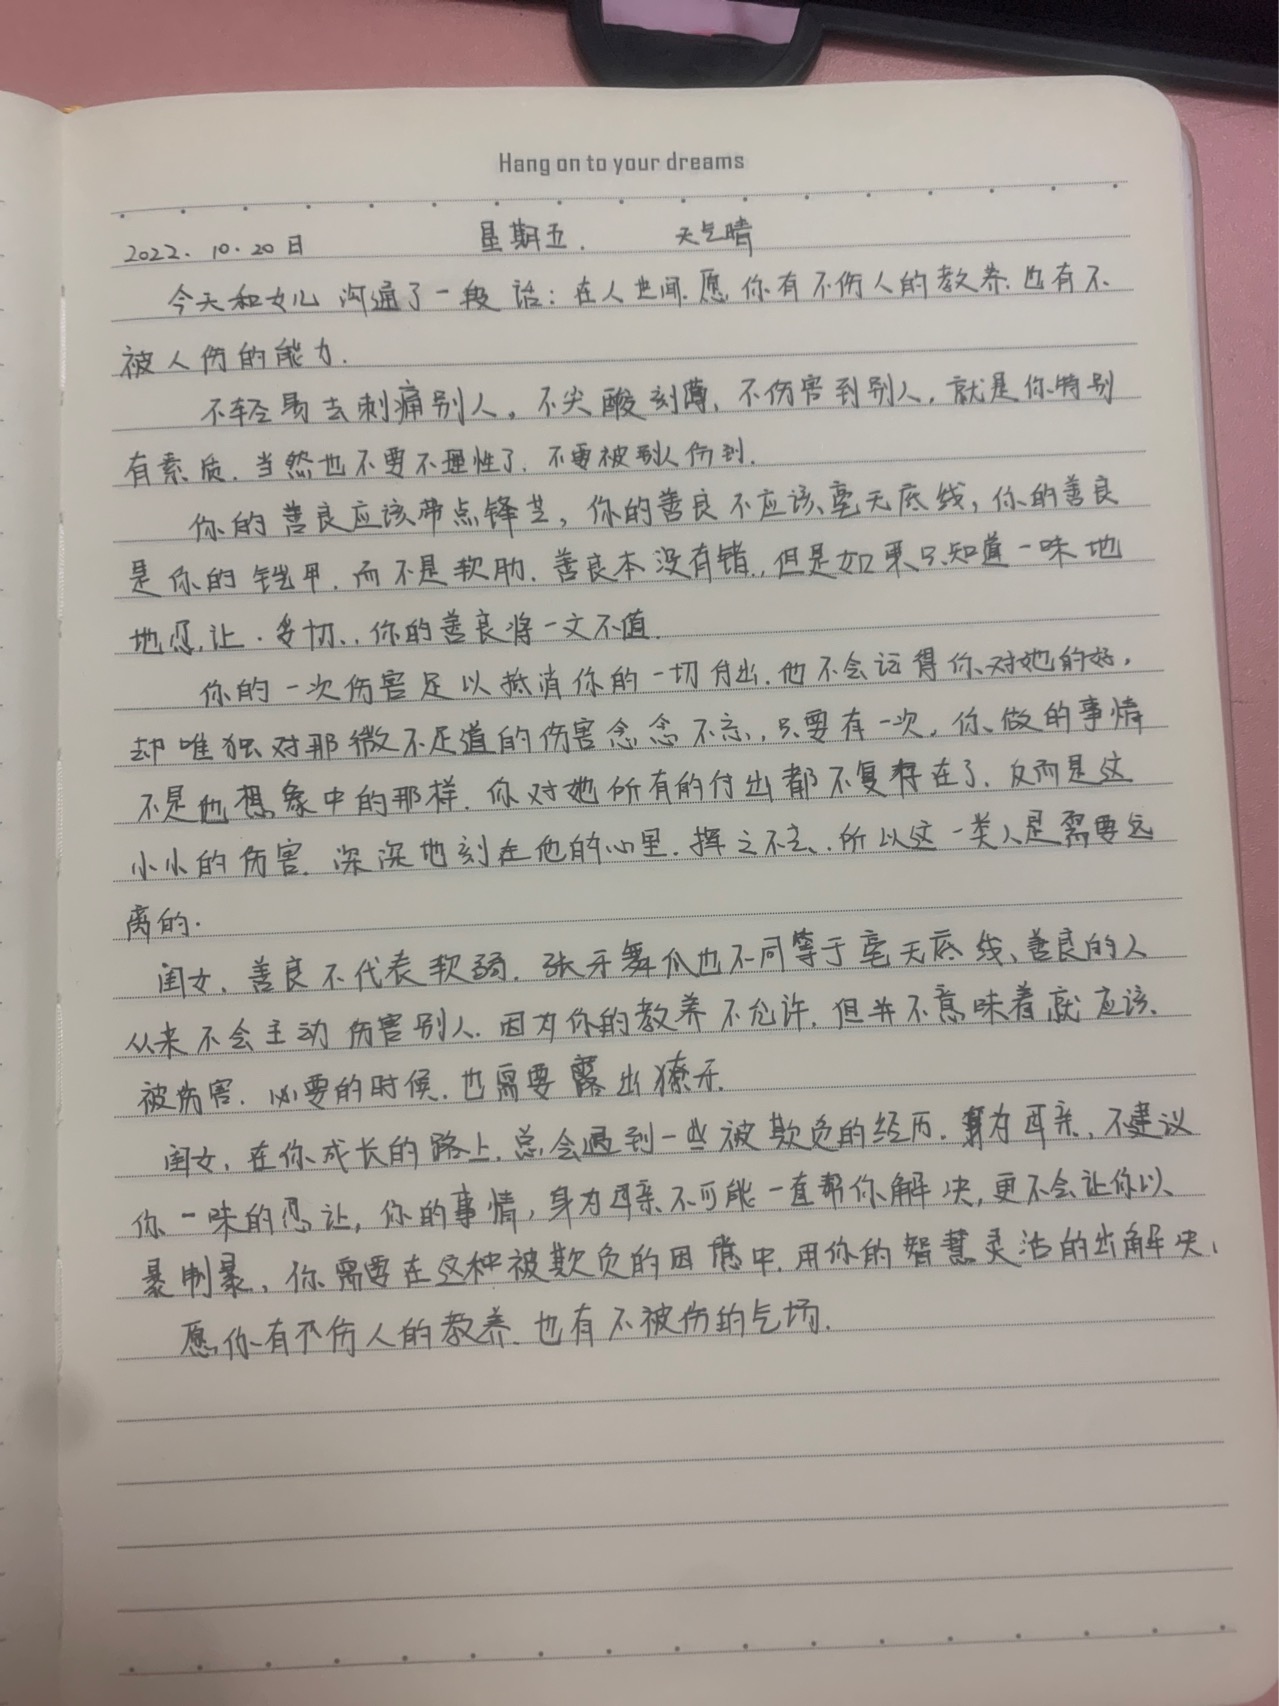 Hang on to your dreams
2022. 10.20日 星期五. 天气晴
今天和女儿沟通了一段话：在人世间.愿你有不伤人的教养.也有不
被人伤的能力.
不轻易去刺痛别人，不尖酸刻薄，不伤害到别人，就是你特别
有素质.当然也不要不理性了.不要被别人伤到.
你的善良应该带点锋芒，你的善良不应该毫无底线，你的善良
是你的铠甲.而不是软肋.善良本没有错.,但是如果只知道一味地
地忍,让.多切.,你的善良将一文不值.
你的一次伤害足以抵消你的一切付出.他不会记得你对她的好，
却唯独对那微不足道的伤害念念不忘.,只要有一次，你做的事情
不是他想象中的那样.你对她所有的付出都不复存在了.反而是这
小小的伤害.深深地刻在他的心里.挥之不去.,所以这一类人是需要远
离的.
闺女，善良不代表软弱.张牙舞爪也不同等于毫无底线、善良的人
从来不会主动伤害别人.因为你的教养不允许.但并不意味着就应该
被伤害.必要的时候.也需要露出獠牙.
闺女，在你成长的路上.总会遇到一些被欺负的经历.身为母亲，不建议
你一味的忍让，你的事情，身为母亲不可能一直帮你解决,更不会让你以
暴制暴，你需要在这种被欺负的困惑中.用你的智慧灵活的出解决，
愿你有不伤人的教养.也有不被伤的气场.